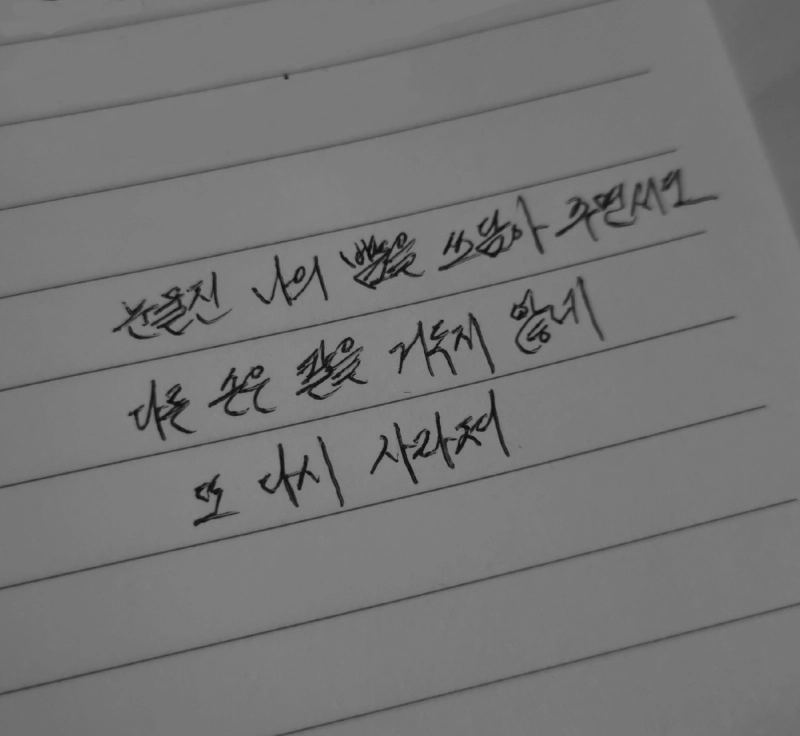 눈물진 나의 뺨을 쓰담아 주면서도
다른 손은 칼을 거두지 않네
또 다시 사라져